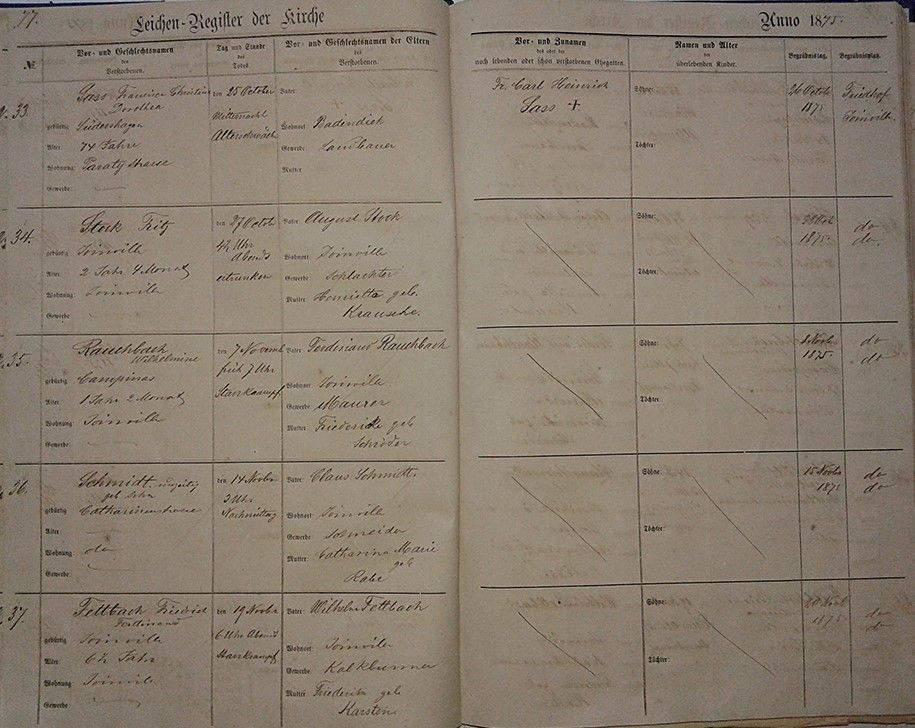 77.
Leichen-Register der Kirche
Anno 1875.
№
Vor- und Geschlechtsnamen
des
Verstorbenen.
Tag und Stunde
des
Todes.
Vor- und Geschlechtsnamen der Eltern
des
Verstorbenen.
Vor- und Zunamen
des oder der
noch lebenden oder schon verstorbenen Ehegatten.
Namen und Alter
der
überlebenden Kinder.
Begräbnistag.
Begräbnisplatz.
33.
Sass Francisca Christina
Dorothea
gebürtig
Alter 74 Jahre
Wohnung: Paraty Strasse
Gewerbe:
den 25 October
Mitternacht
Altersschwäche
Vater:
Wohnort: Badendiek
Gewerbe: Landbauer
Mutter
Fr. Carl Heinrich
Sass +
Söhne:
Töchter:
26 Octob
1875
Friedhof
Joinville.
34.
Stock Fritz
gebürtig Joinville
Alter 2 Jahr 4 Monat
Wohnung: Joinville
Gewerbe:
den 27 Octob
4½ Uhr
Abends
ertrunken
Vater: August Stock
Wohnort: Joinville
Gewerbe: Schlachter
Mutter: Henriette geb.
Krausche.
Söhne:
Töchter:
1875.
do
do.
35.
Rauchbach
Wilhelmine
gebürtig Campinas
Alter 1 Jahr 2 Monat
Wohnung: Joinville
Gewerbe:
den 7 Novemb
früh 7 Uhr
Starrkrampf
Vater: Ferdinand Rauchbach
Wohnort: Joinville
Gewerbe: Maurer
Mutter: Friederike geb
Schröder
Söhne:
Töchter:
8 Novb
1875.
do
do
36.
Schmidt, unzeitig
geb. Sohn
gebürtig Catharinenstrasse
Alter
Wohnung: do
Gewerbe:
den 14 Novbr
3 Uhr
Nachmittag
Vater: Claus Schmidt
Wohnort: Joinville
Gewerbe: Schneider
Mutter: Catharina Marie
geb
Rabe
Söhne:
Töchter:
15 Novbr
1875
do
do
37.
Fettbach Friedrich
Ferdinand
gebürtig Joinville
Alter 6½ Jahr
Wohnung: Joinville
Gewerbe:
den 19 Novbr
6 Uhr Abends
Starrkrampf
Vater: Wilhelm Fettbach
Wohnort: Joinville
Gewerbe: Kalkbrenner
Mutter: Friederike geb
Karsten
Söhne:
Töchter:
20 Novb
1875
do
do